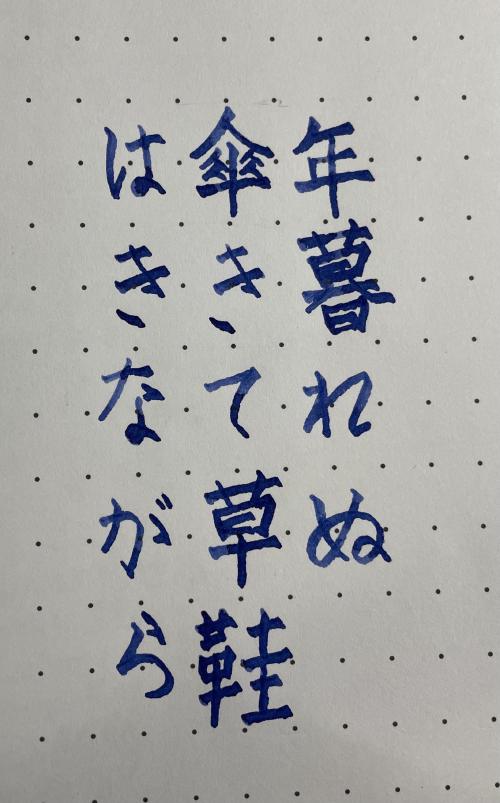 年暮れぬ
傘きて草鞋
はきながら